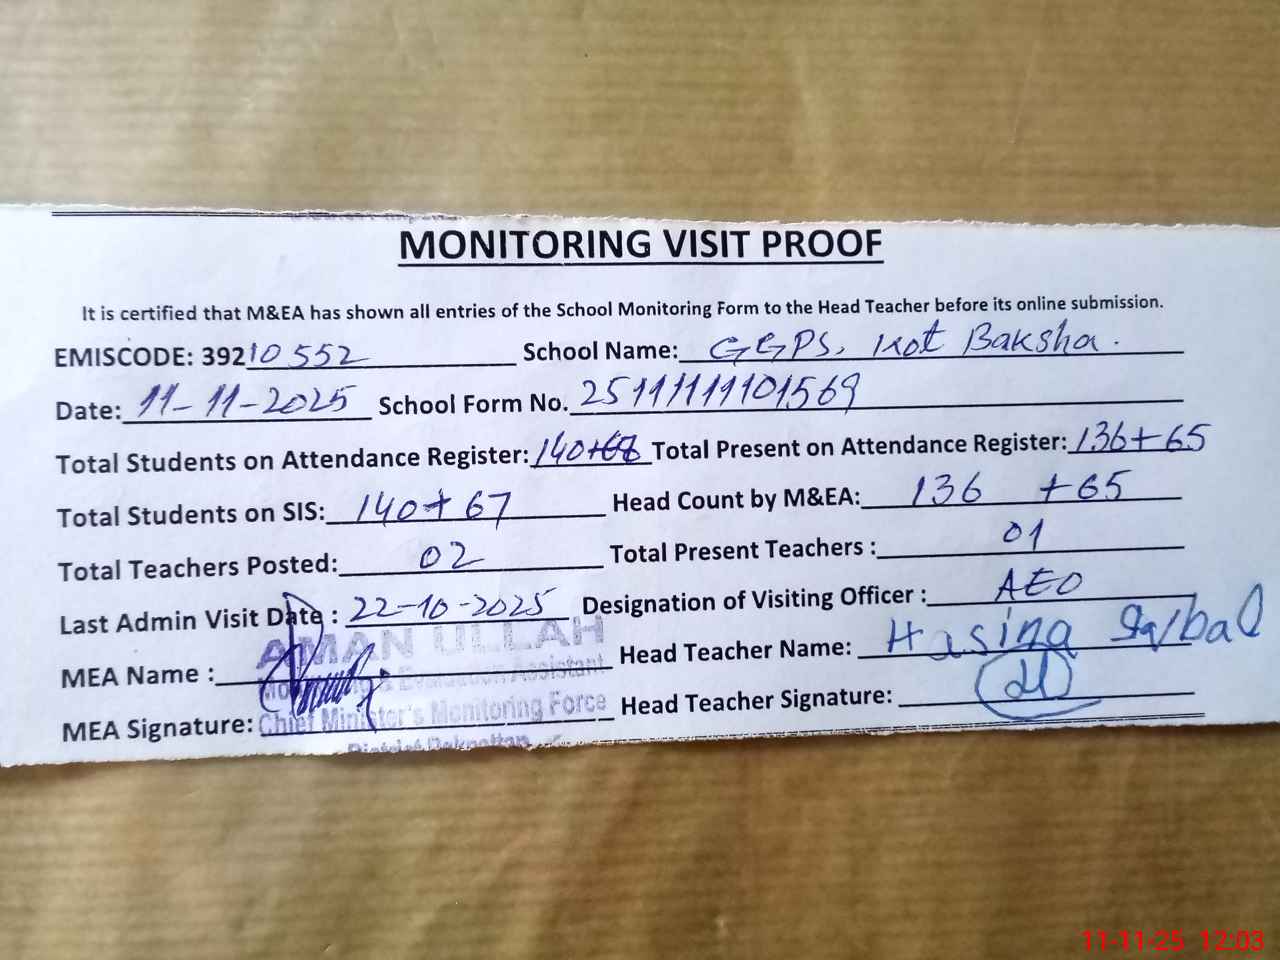 MONITORING VISIT PROOF
It is certified that M&EA has shown all entries of the School Monitoring Form to the Head Teacher before its online submission.
EMISCODE: 39210552 School Name: GGPS, Kot Baksha.
Date: 11-11-2025 School Form No. 25111111101569
Total Students on Attendance Register: 140+ Total Present on Attendance Register: 136+65
Total Students on SIS: 140+67 Head Count by M&EA: 136 +65
Total Teachers Posted: 02 Total Present Teachers : 01
Last Admin Visit Date : 22-10-2025 Designation of Visiting Officer : AEO
AMAN ULLAH
MEA Name : Monitoring & Evaluation Assistant Head Teacher Name: Hasina Iqbal
MEA Signature: Chief Minister's Monitoring Force Head Teacher Signature:
District Pakpattan
11-11-25 12:03